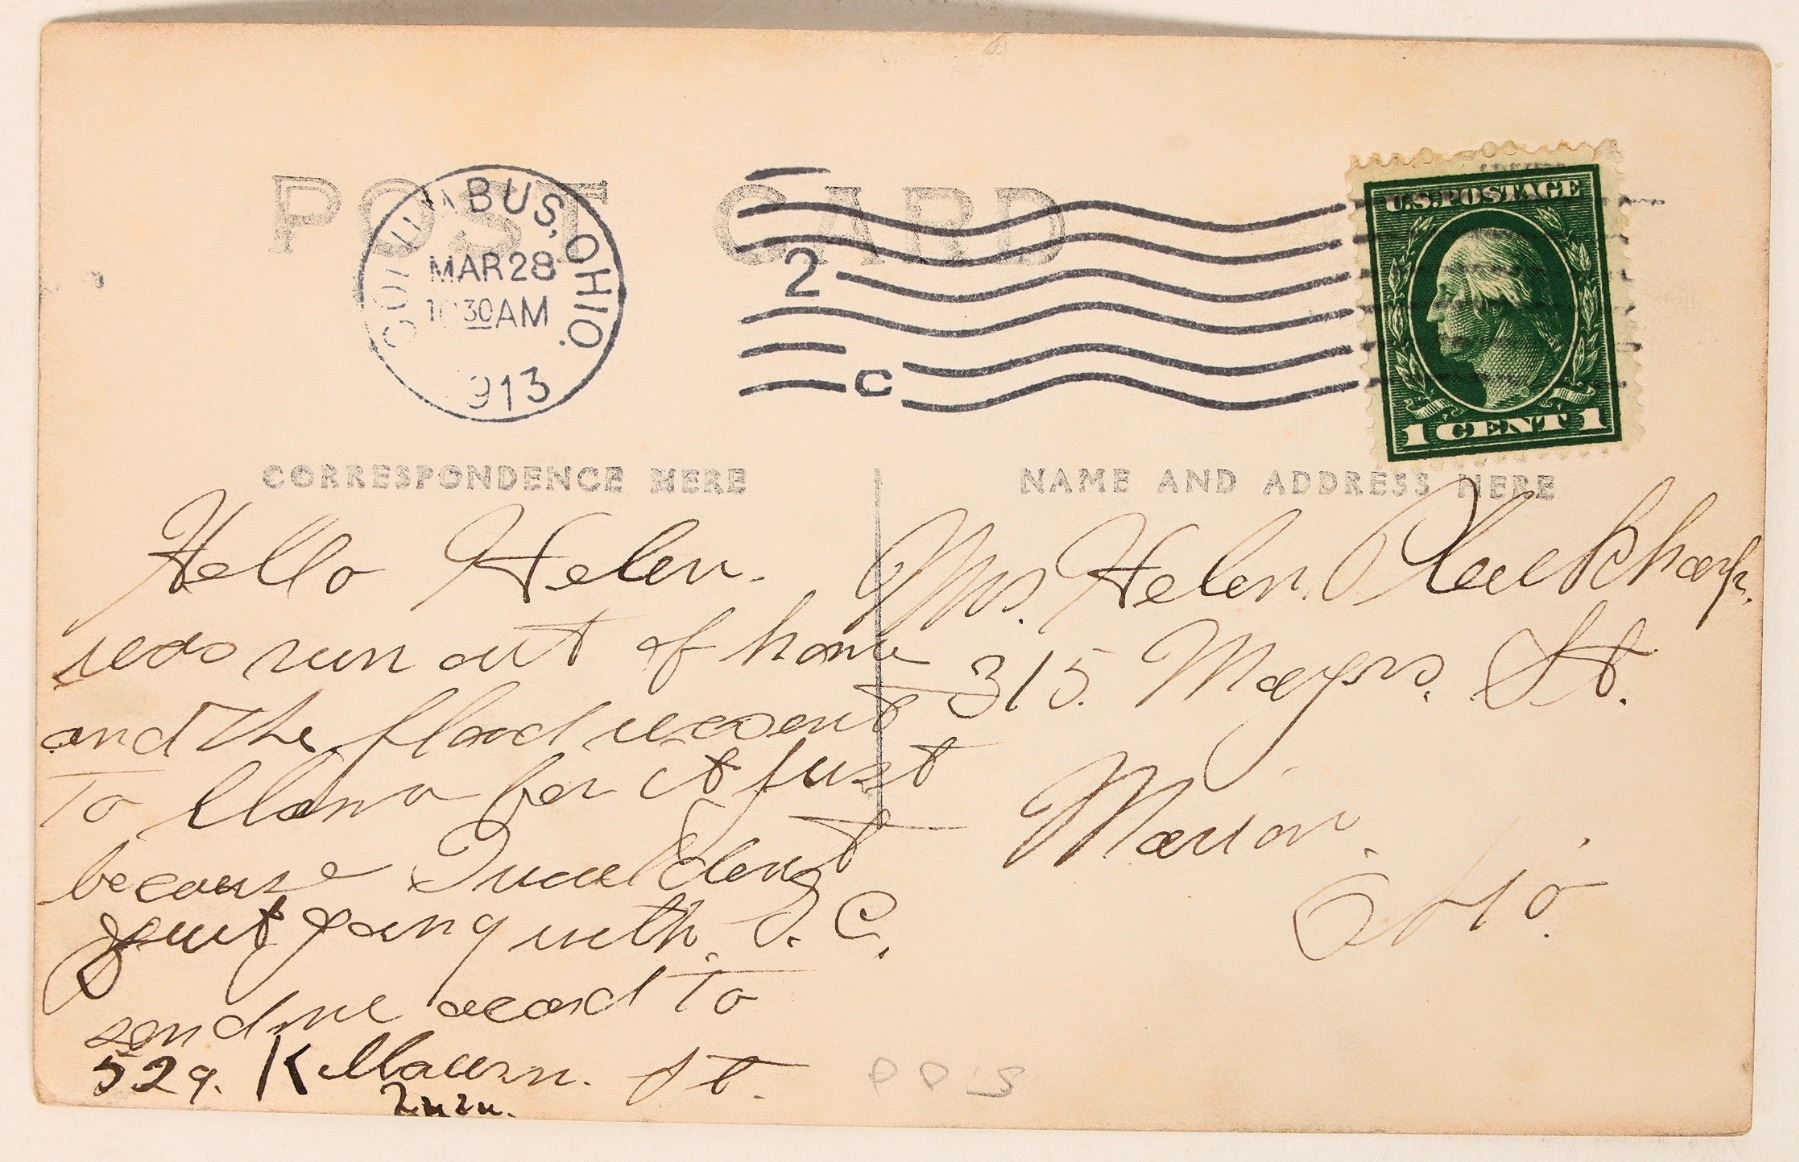 POST CARD
COLUMBUS, OHIO.
MAR 28
10 30 AM
1913
2
C
U.S. POSTAGE
1 CENT 1
CORRESPONDENCE HERE
Hello Helen.
was run out of home
and the flood wasent
to blame for it just
because I
quit going with. S. C.
send me acard to
529. St.
NAME AND ADDRESS HERE
Mrs. Helen.
315. Mayrs. St.
Marion.
Ohio.